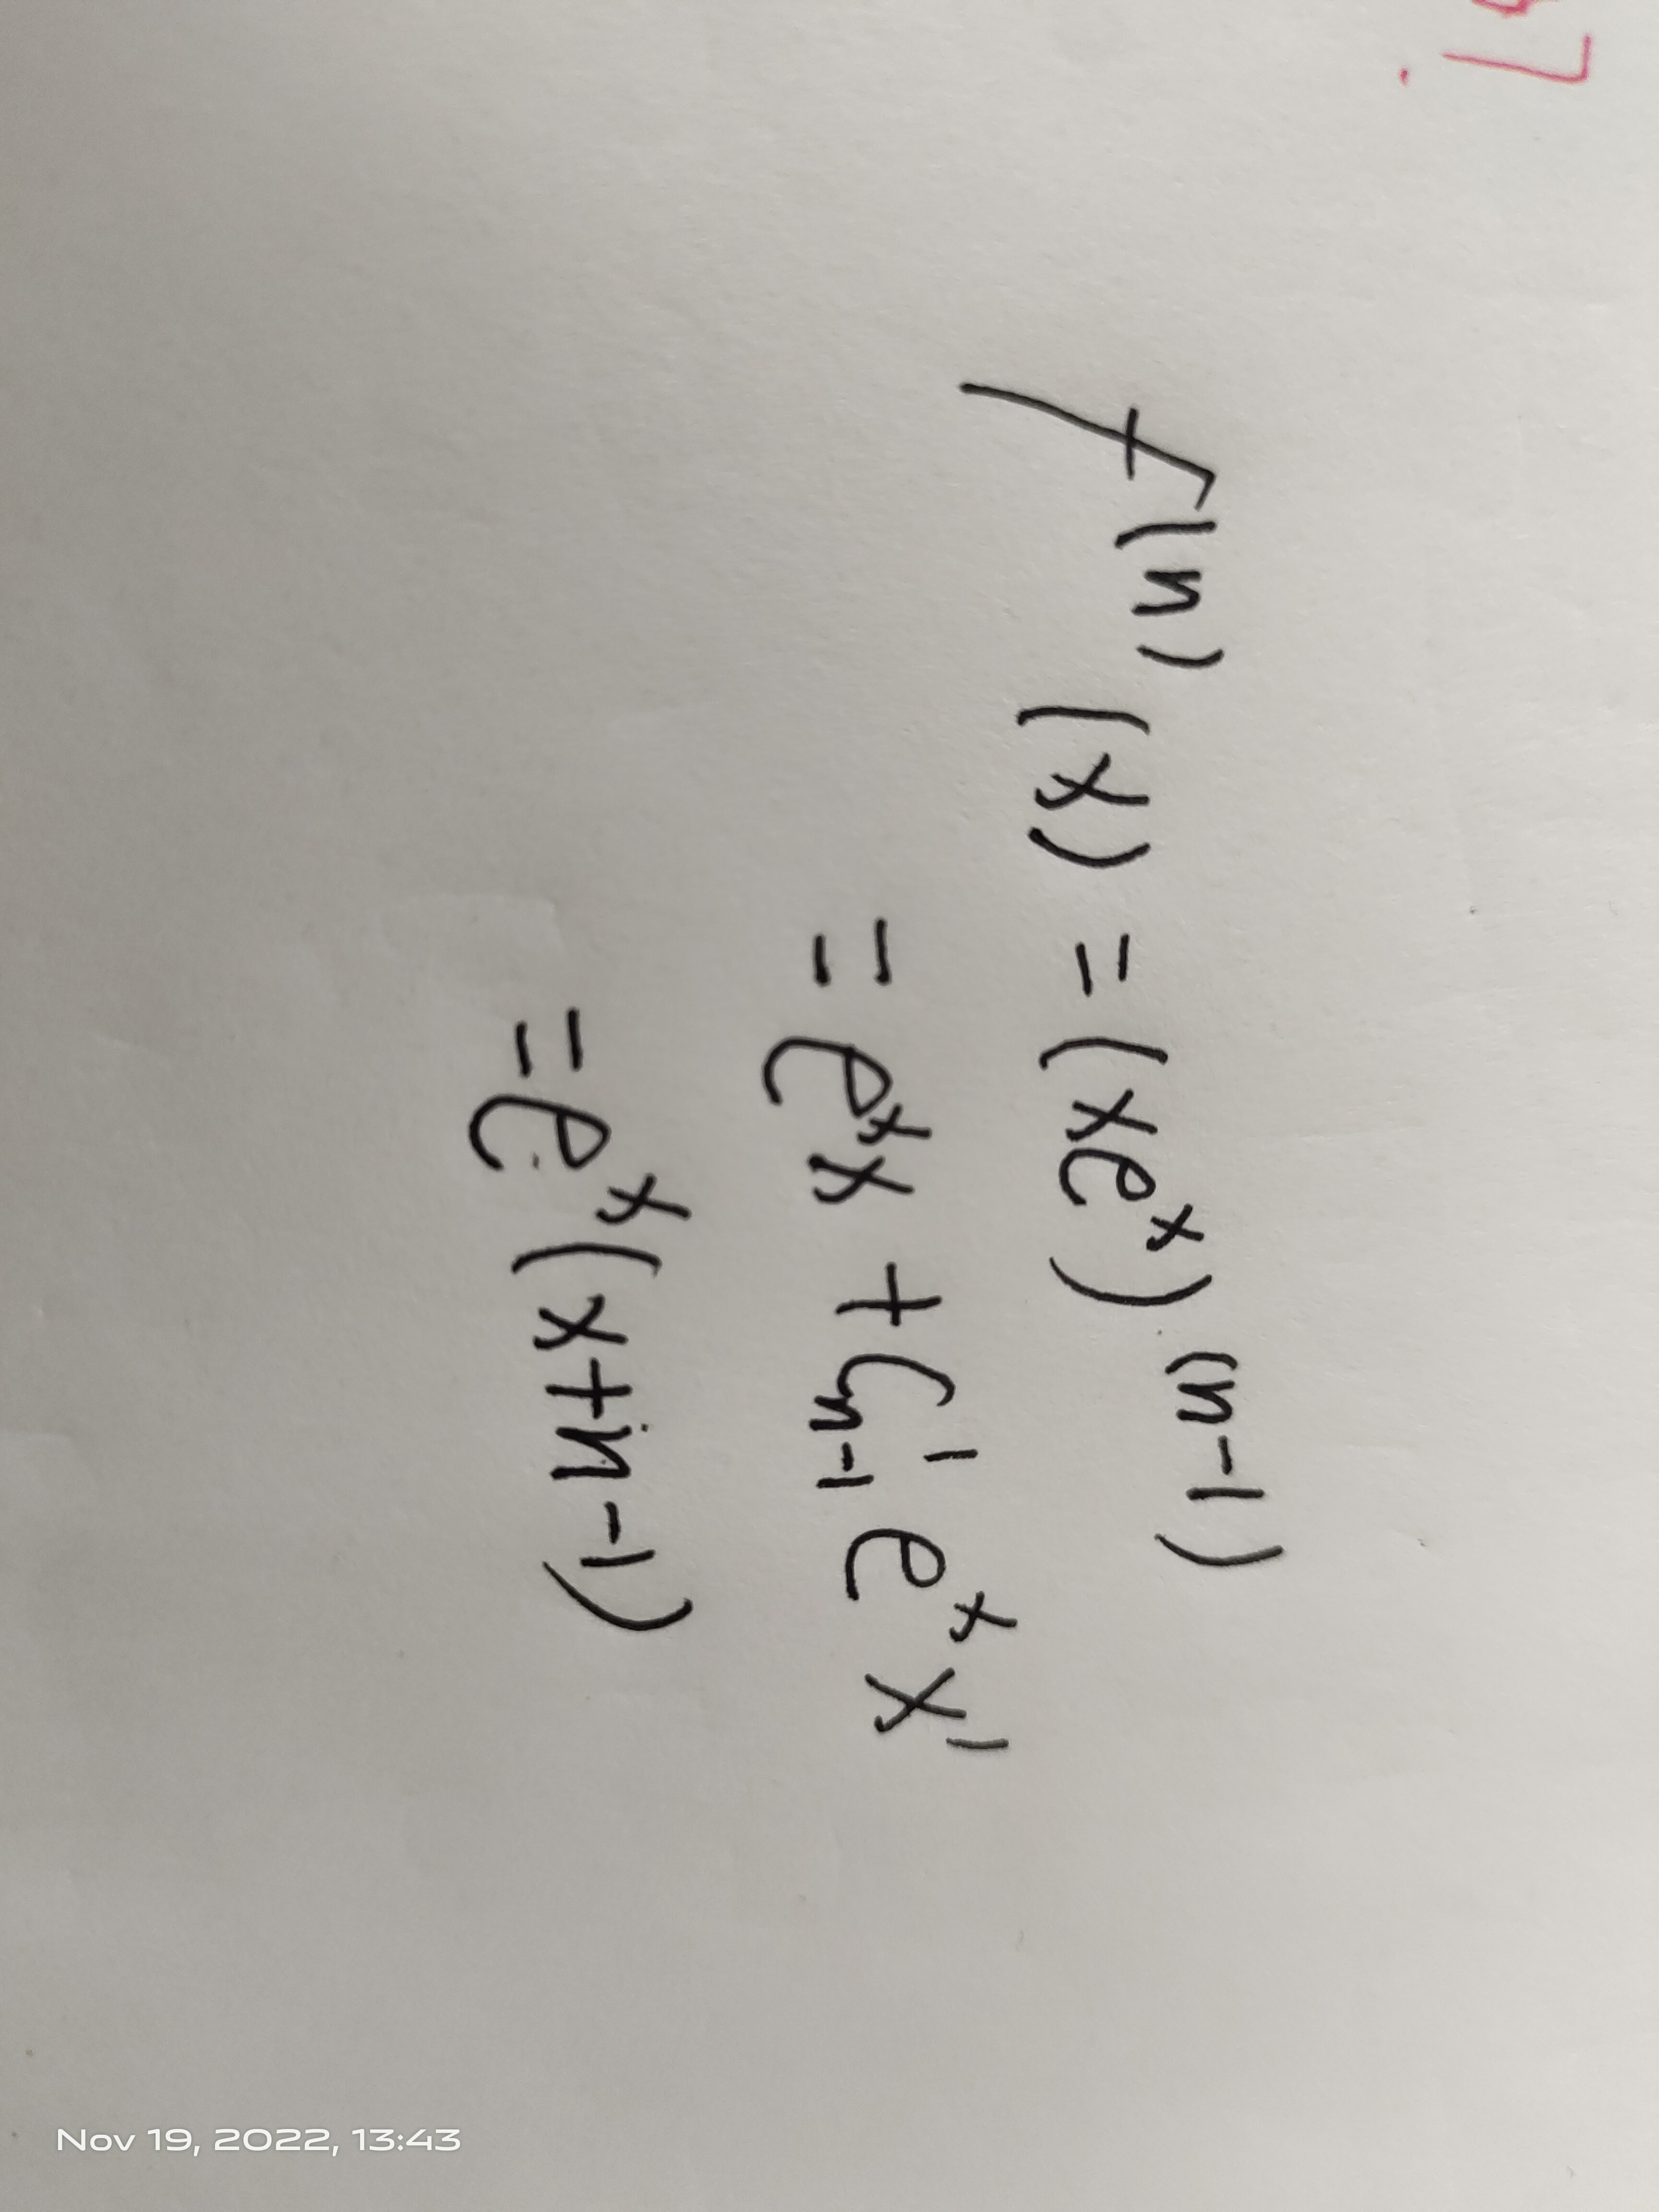 f⁽ⁿ⁾(x) = (xeˣ)⁽ⁿ⁻¹⁾
= eˣx + C¹ₙ₋₁ eˣ x'
= eˣ(x+n-1)
Nov 19, 2022, 13:43